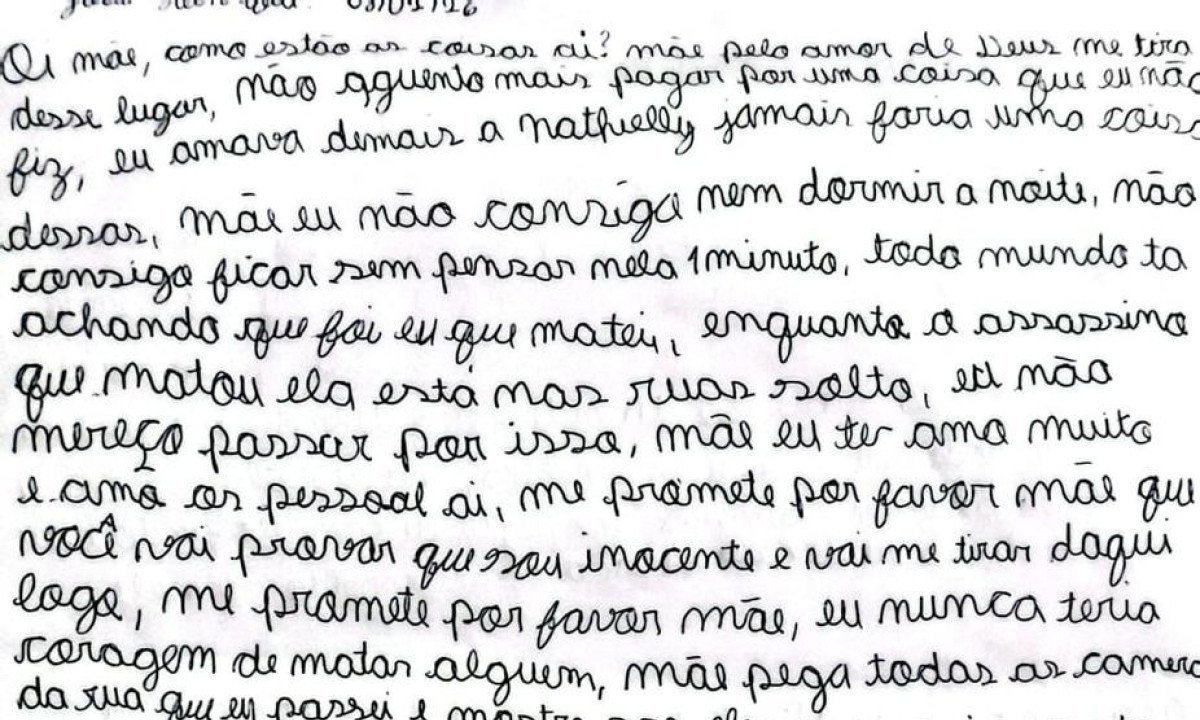 03/01/18
Oi mãe, como estão as coisas ai? mãe pelo amor de Deus me tira
desse lugar, não aguento mais pagar por uma coisa que eu não
fiz, eu amava demais a Nathielly jamais faria uma coisa
dessas, mãe eu não consigo nem dormir a noite, não
consigo ficar sem pensar nela 1 minuto, todo mundo ta
achando que foi eu que matei, enquanto o assassino
que matou ela está nas ruas solto, eu não
mereço passar por isso, mãe eu te amo muito
e amo os pessoal ai, me promete por favor mãe que
você vai provar que sou inocente e vai me tirar daqui
logo, me promete por favor mãe, eu nunca teria
coragem de matar alguem, mãe pega todas as camera
da rua que eu passei e